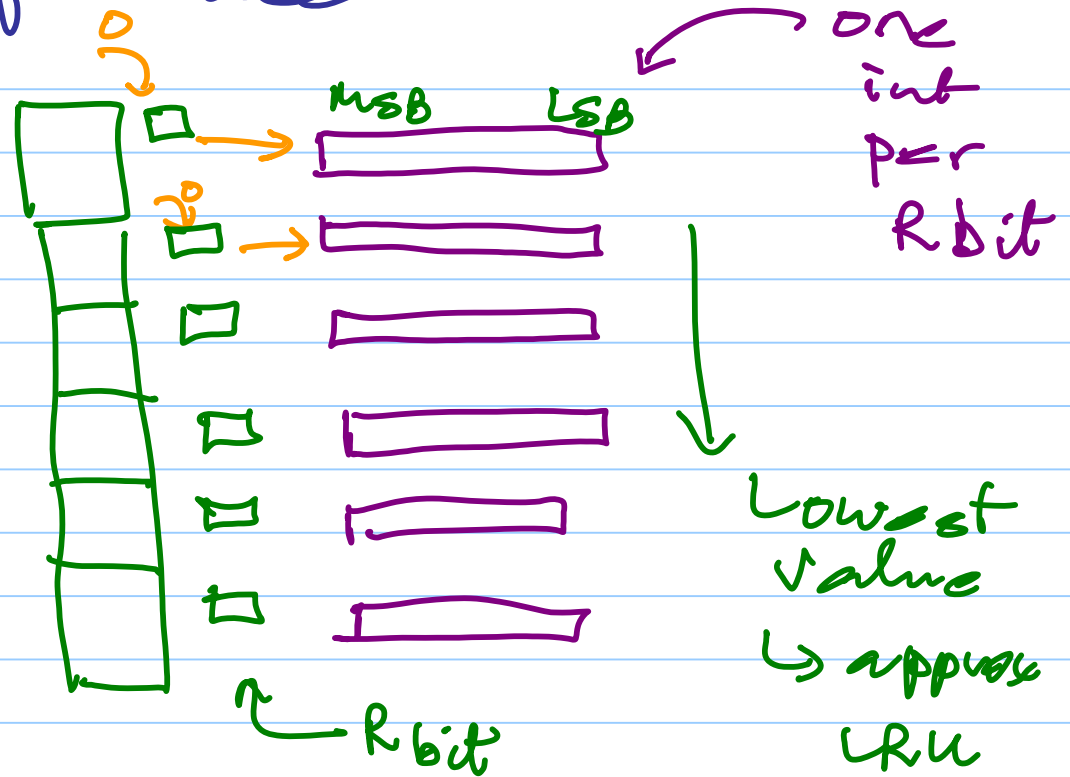 0
MSB LSB
one
int
per
R bit
0
Lowest
value
↳ approx
LRU
R bit